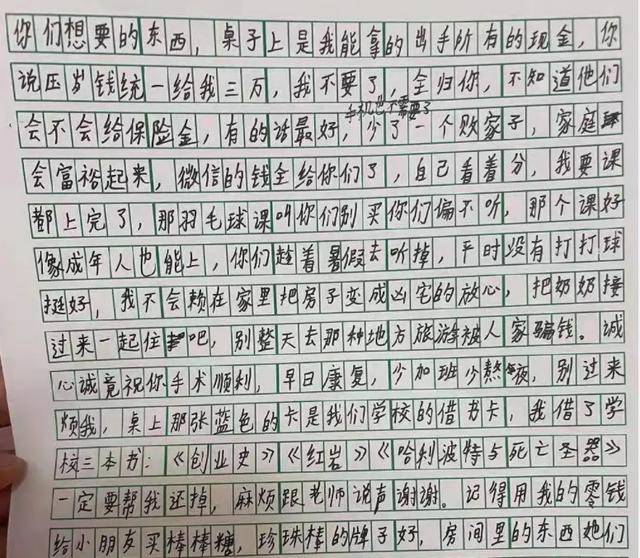 你们想要的东西，桌子上是我能拿的出手所有的现金，你
说压岁钱统一给我三万，我不要了，全归你，不知道他们
手机也不需要了
会不会给保险金，有的话最好，少了一个败家子，家庭
会富裕起来，微信的钱全给你们了，自己看着分，我要课
都上完了，那羽毛球课叫你们别买你们偏不听，那个课好
像成年人也能上，你们趁着暑假去听掉，平时没有打打球
挺好，我不会赖在家里把房子变成凶宅的放心，把奶奶接
过来一起住吧，别整天去那种地方旅游被人家骗钱。诚
心诚竟祝你手术顺利，早日康复，少加班少熬夜，别过来
烦我，桌上那张蓝色的卡是我们学校的借书卡，我借了学
校三本书：《创业史》《红岩》《哈利波特与死亡圣器》
一定要帮我还掉，麻烦跟老师说声谢谢。记得用我的零钱
给小朋友买棒棒糖，珍珠棒的牌子好，房间里的东西她们